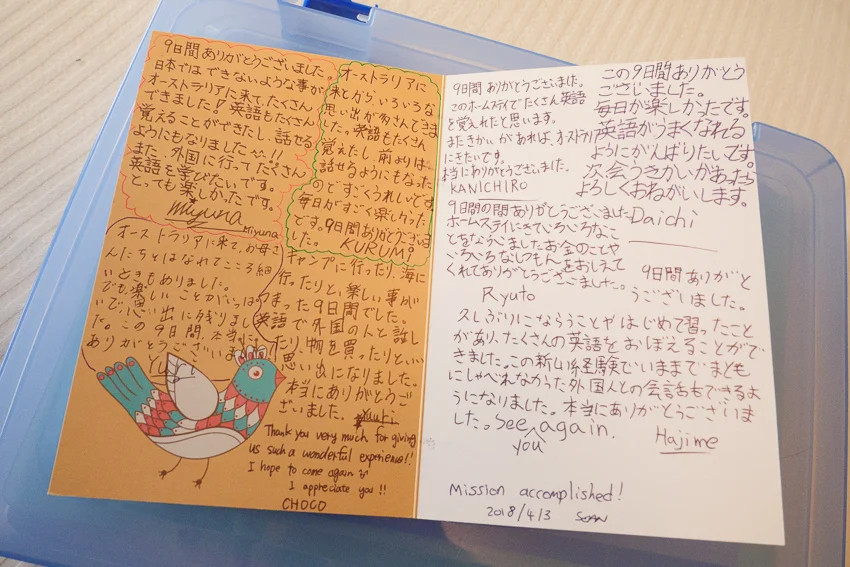 9日間ありがとうございました。
日本ではできないような事が
オーストラリアに来て、たくさん
できました！英語もたくさん
覚えることができたし、話せる
ようにもなりました!!
また、外国に行ってたくさん
英語を学びたいです。
とっても楽しかったです。
Miyuna
Miyuna
オーストラリアに
来てから、いろいろな
思い出が多さんできま
した。英語もたくさん
覚えたし、前よりは
話せるようにもなった
のですごくうれしいです
毎日がすごく楽しかった
です。9日間ありがとうございま
した。 KURUMI
オーストラリアに来て、お母さ
んたちとはなれてこころ細
いときもありました。
でも、楽しいことがいっぱ
いで、思い出に残りました
た。この9日間、本当に
ありがとうございました
キャンプに行ったり、海に
行ったりと、楽しい事が
つまった9日間でした。
英語で外国の人と話し
たり、物を買ったりといい
思い出になりました。
本当にありがとうご
ざいました。 Yuuri
Thank you very much for giving
us such a wonderful experience!!
I hope to come again
I appreciate you!!
CHOCO
9日間 ありがとうございました。
このホームステイでたくさん英語
を覚えれたと思います。
またきかいがあれば、オーストラリア
にきたいです。
本当にありがとうございました。
KANICHIRO
この9日間ありがとう
ございました。
毎日が楽しかったです。
英語がうまくなれる
ようにがんばりたいです。
次会うきかいがあったら
よろしくおねがいします。
Daichi
9日間の間ありがとうございました
ホームステイにきていろいろなこ
とをならいましたお金のことや
いろいろなしつもんをおしえて
くれてありがとうございました。
Ryuto
9日間ありがと
うございました。
久しぶりにならうことやはじめて習ったこと
があり、たくさんの英語をおぼえることがで
きました。この新しい経験でいままでまとも
にしゃべれなかった外国人との会話もできるよ
うになりました。本当にありがとうございま
した。See you again.
Hajime
Mission accomplished!
2018/4/3 SEAN